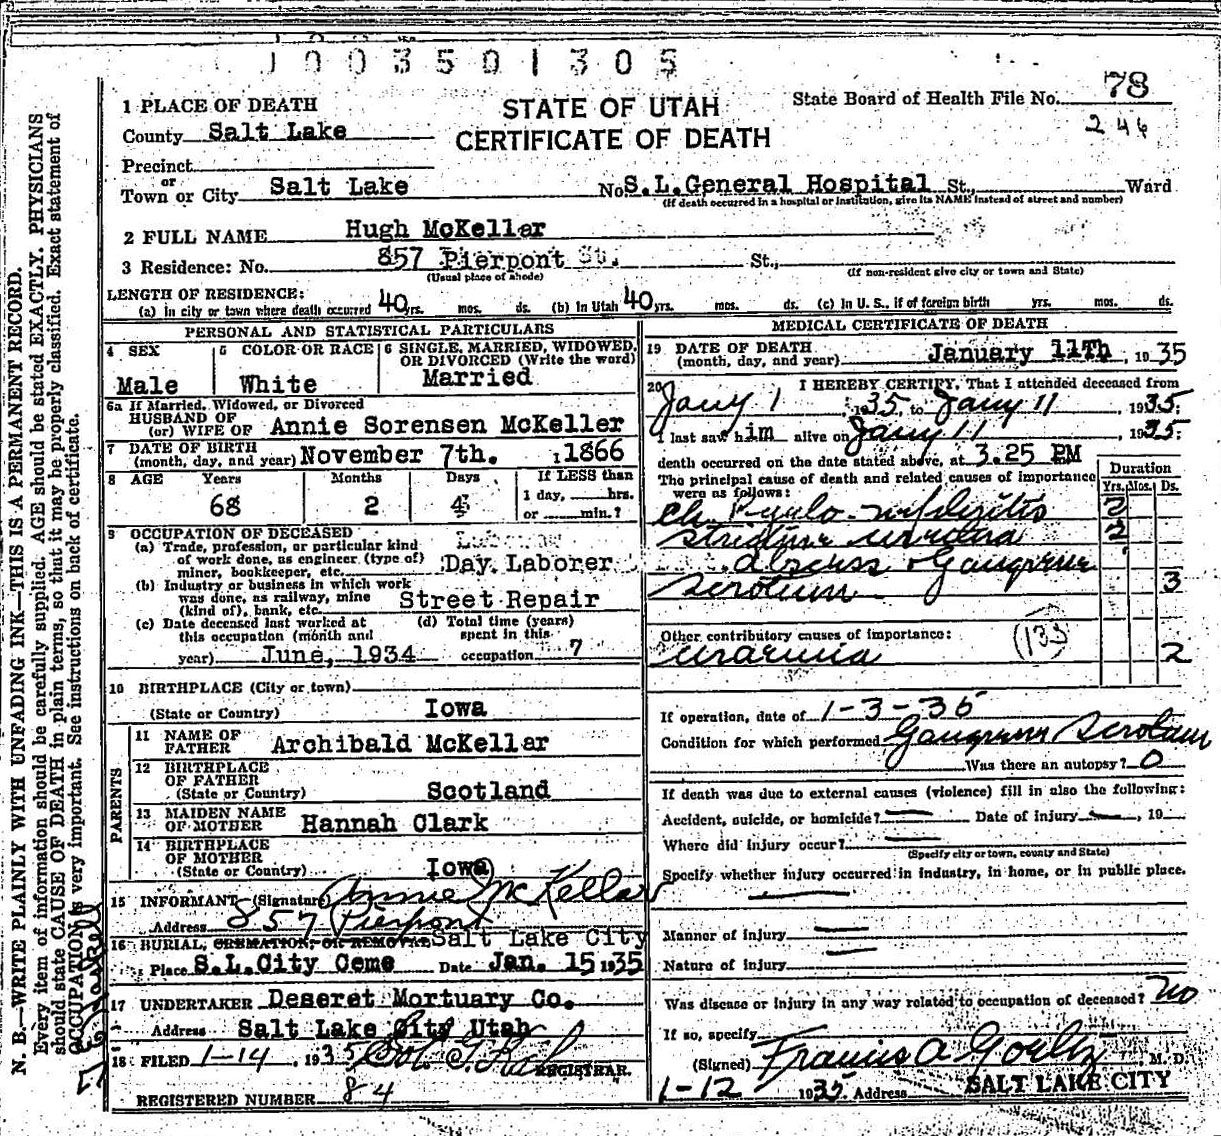 1003501305
1 PLACE OF DEATH
STATE OF UTAH
CERTIFICATE OF DEATH
State Board of Health File No. 78
246
County Salt Lake
Precinct
or
Town or City Salt Lake No. S.L.General Hospital St., Ward
(If death occurred in a hospital or institution, give its NAME instead of street and number)
2 FULL NAME Hugh McKellar
3 Residence: No. 857 Pierpont St. St.,
(Usual place of abode) (If non-resident give city or town and State)
LENGTH OF RESIDENCE:
(a) In city or town where death occurred 40 yrs. mos. ds. (b) In Utah 40 yrs. mos. ds. (c) In U. S., if of foreign birth yrs. mos. ds.
PERSONAL AND STATISTICAL PARTICULARS
4 SEX 5 COLOR OR RACE 6 SINGLE, MARRIED, WIDOWED,
OR DIVORCED (Write the word)
Male White Married
6a If Married, Widowed, or Divorced
HUSBAND OF
(or) WIFE OF Annie Sorensen McKeller
7 DATE OF BIRTH
(month, day, and year) November 7th. , 1866
8 AGE Years Months Days If LESS than
1 day, hrs.
68 2 4 or min.?
9 OCCUPATION OF DECEASED
(a) Trade, profession, or particular kind
of work done, as engineer (type of)
miner, bookkeeper, etc. Day Laborer
(b) Industry or business in which work
was done, as railway, mine
(kind of), bank, etc. Street Repair
(c) Date deceased last worked at
this occupation (month and
year) June, 1934
(d) Total time (years)
spent in this
occupation 7
10 BIRTHPLACE (City or town)
(State or Country) Iowa
PARENTS
11 NAME OF
FATHER Archibald McKellar
12 BIRTHPLACE
OF FATHER
(State or Country) Scotland
13 MAIDEN NAME
OF MOTHER Hannah Clark
14 BIRTHPLACE
OF MOTHER
(State or Country) Iowa
15 INFORMANT (Signature) Annie McKellar
Address 857 Pierpont
16 BURIAL, CREMATION, OR REMOVAL Salt Lake City
Place S.L.City Ceme Date Jan. 15 1935
17 UNDERTAKER Deseret Mortuary Co.
Address Salt Lake City Utah
18 FILED 1-14, 1935
REGISTRAR.
REGISTERED NUMBER 84
MEDICAL CERTIFICATE OF DEATH
19 DATE OF DEATH
(month, day, and year) January 11Th , 1935
20 I HEREBY CERTIFY, That I attended deceased from
Jany 1 1935, to Jany 11 , 1935;
I last saw him alive on Jany 11 , 1935;
death occurred on the date stated above, at 3.25 PM
The principal cause of death and related causes of importance
were as follows:
Duration
Yrs. Mos. Ds.
Ch. Pyelo-nephritis 2
Stricture urethra 2
Abscess & Gangrene
Scrotum 3
Other contributory causes of importance:
uraemia 2
If operation, date of 1-3-35
Condition for which performed Gangrene Scrotum
Was there an autopsy? 0
If death was due to external causes (violence) fill in also the following:
Accident, suicide, or homicide? Date of injury , 19
Where did injury occur?
(Specify city or town, county and State)
Specify whether injury occurred in industry, in home, or in public place.
Manner of injury
Nature of injury
Was disease or injury in any way related to occupation of deceased? No
If so, specify
(Signed) Francis A Goeltz M. D.
1-12 1935 Address SALT LAKE CITY
N. B.—WRITE PLAINLY WITH UNFADING INK—THIS IS A PERMANENT RECORD.
Every item of information should be carefully supplied. AGE should be stated EXACTLY. PHYSICIANS
should state CAUSE OF DEATH in plain terms, so that it may be properly classified. Exact statement of
OCCUPATION is very important. See instructions on back of certificate.